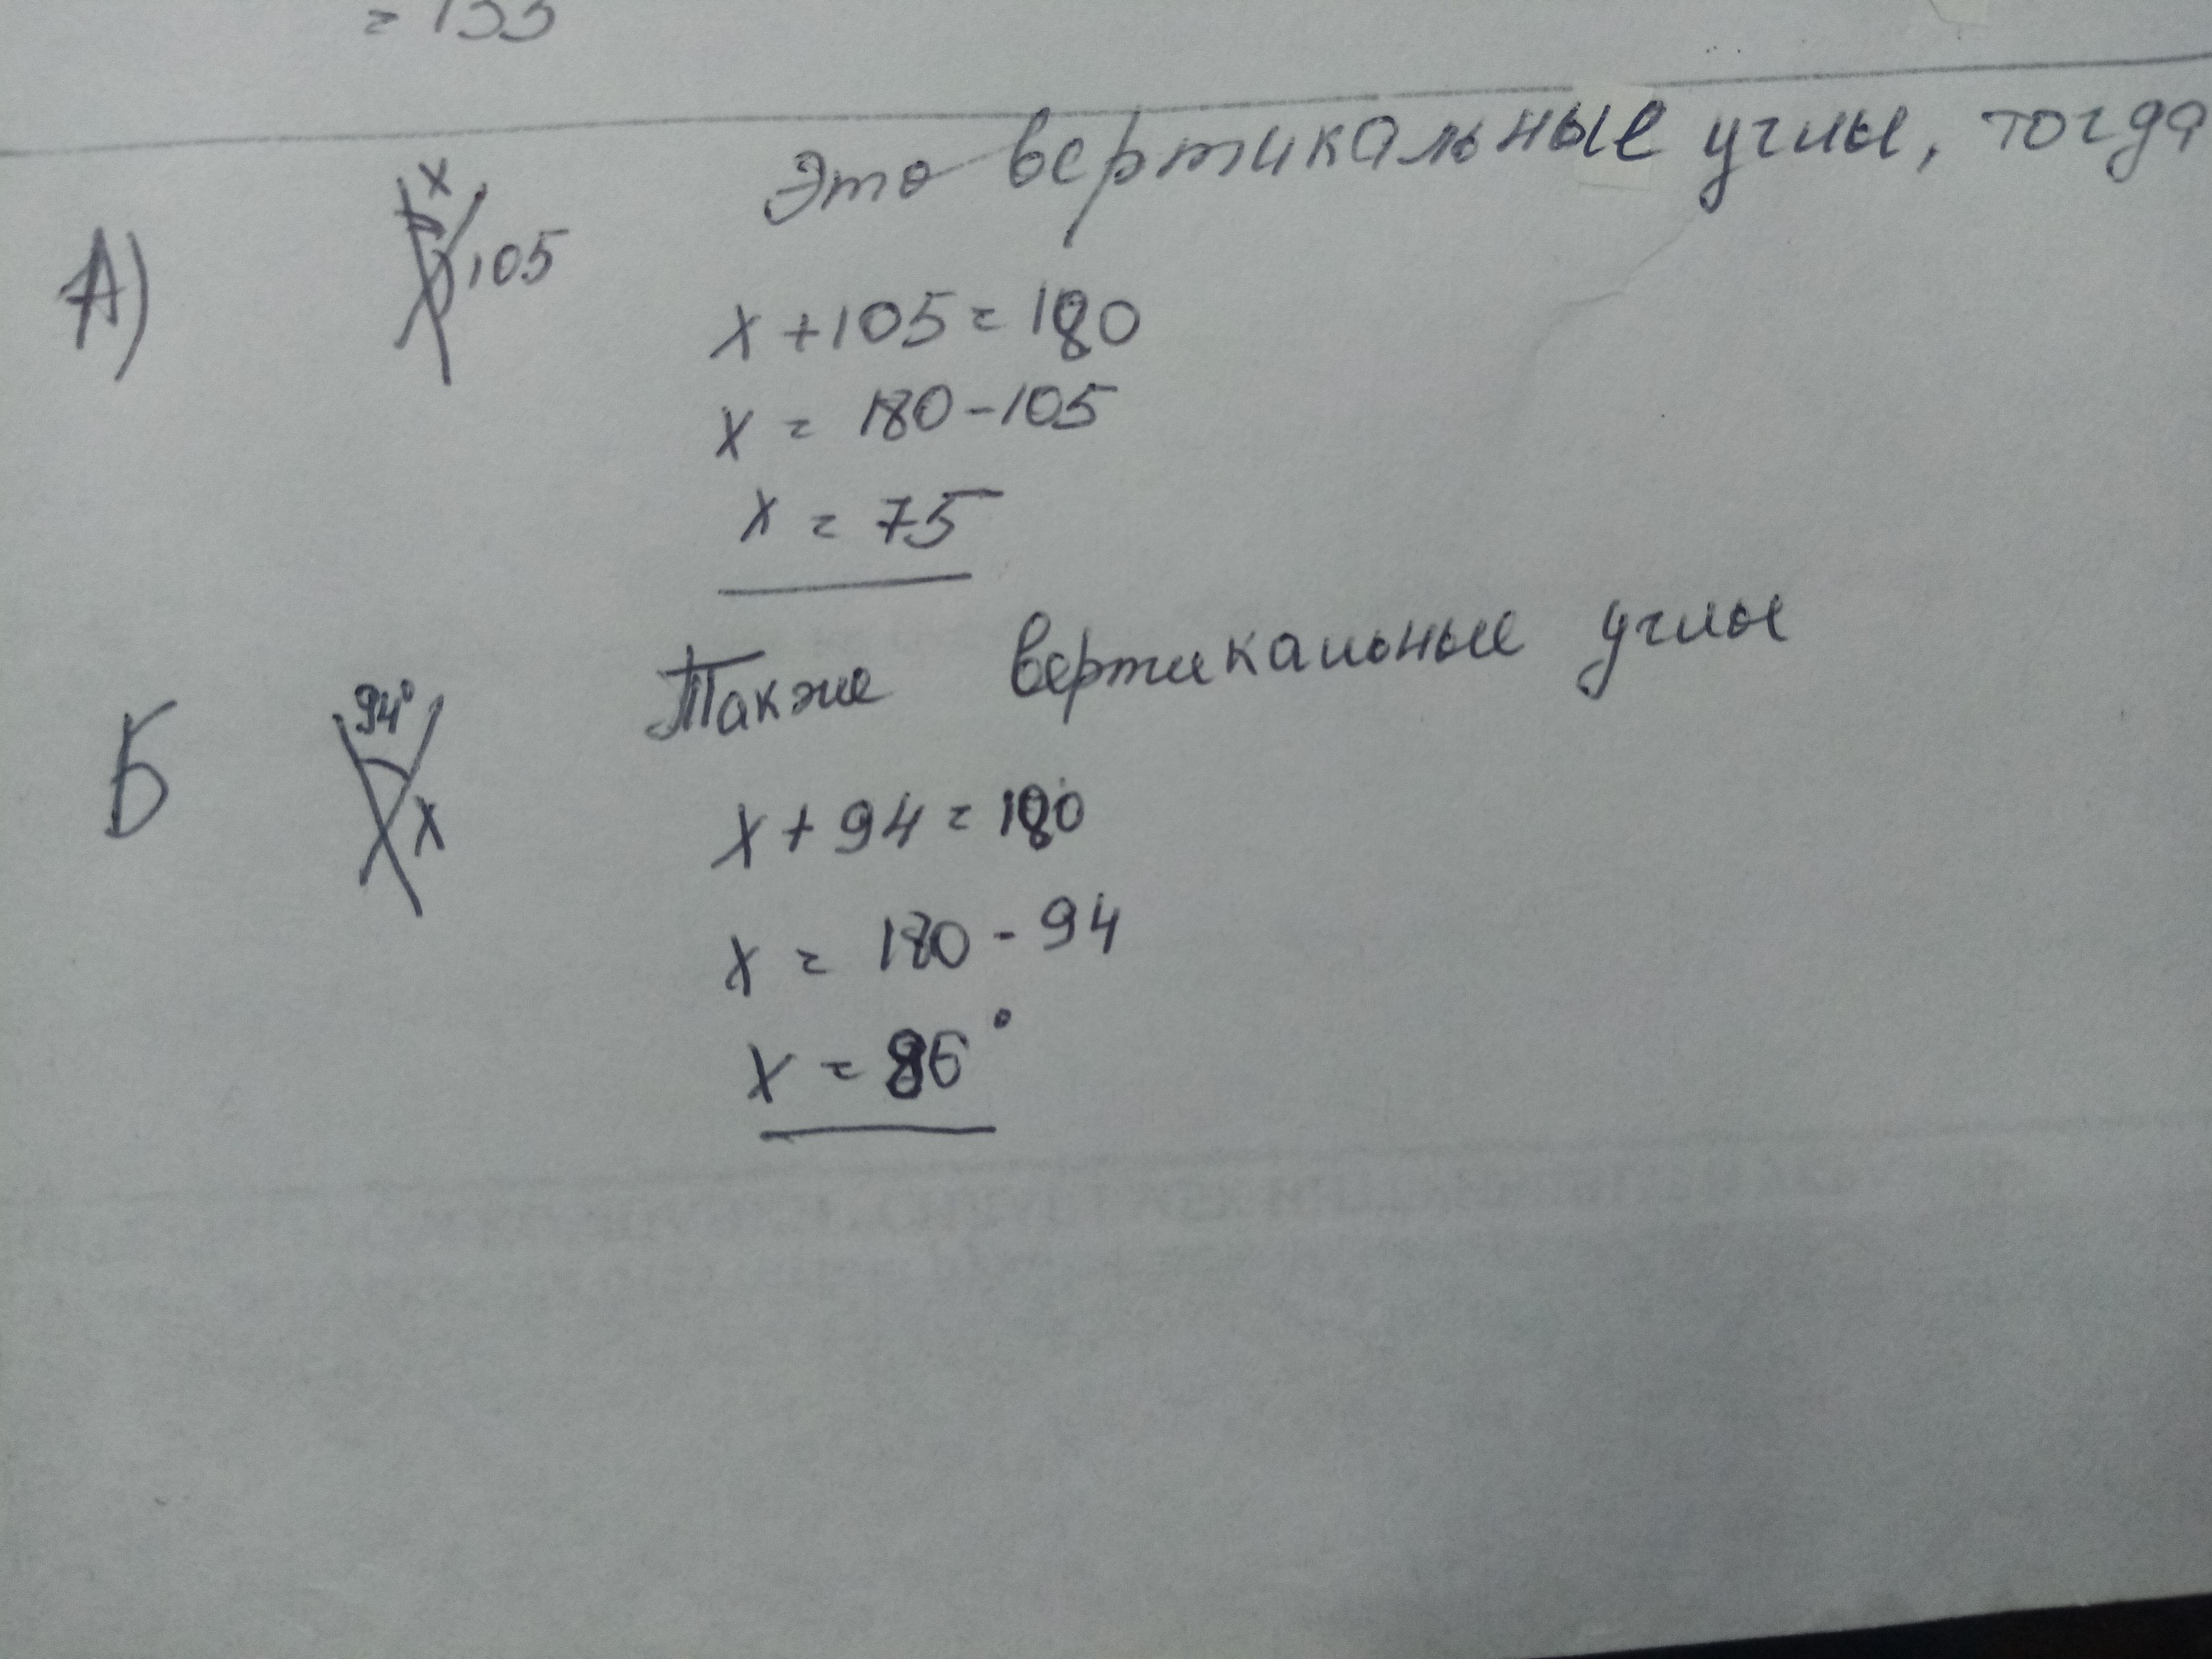 = 155
Это вертикальные углы, тогда
А)
x
105
x + 105 = 180
x = 180 - 105
x = 75
Также вертикальные углы
Б
94°
x
x + 94 = 180
x = 180 - 94
x = 86°